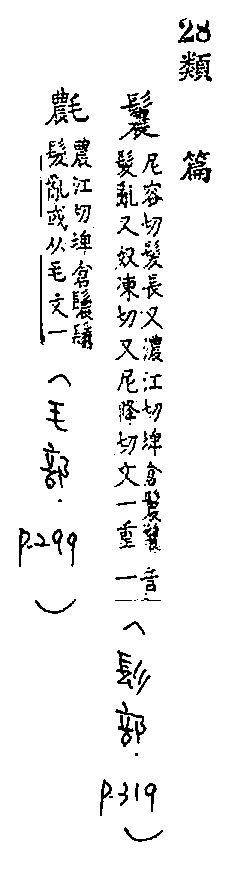 28類篇
鬞 尼容切髮長又濃江切埤倉鬞鬤
髮亂又奴凍切又尼降切文一重
音一
(髟部. P.319)
農江切埤倉鬞鬤
髮亂或从毛文一
(毛部. P.299)